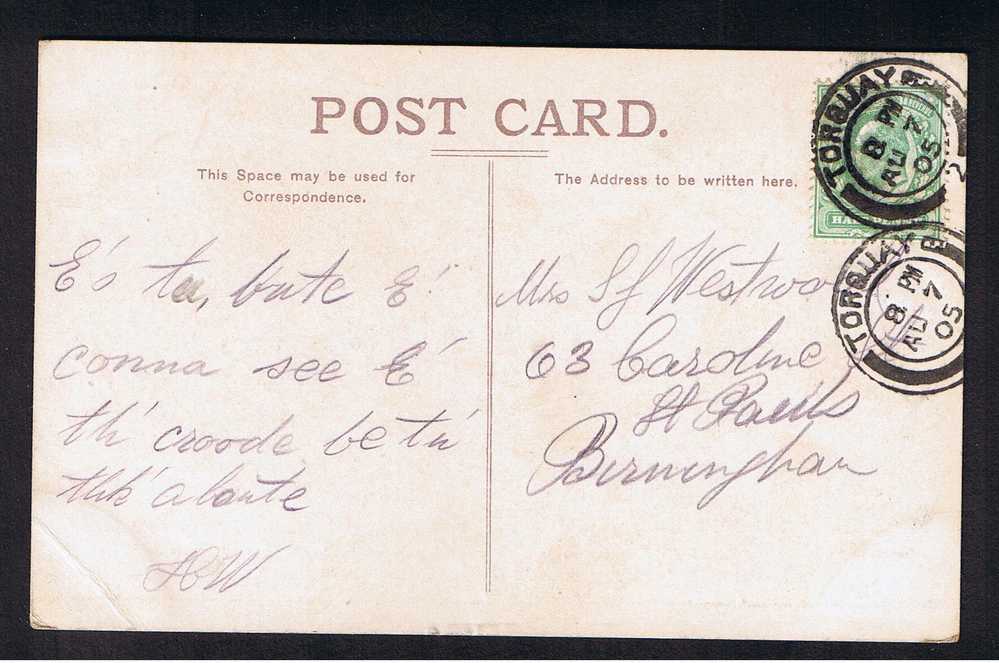 POST CARD.
This Space may be used for
Correspondence.
The Address to be written here.
E's tu, bute E'
conna see E'
th' croode be tu'
thk' aboute
HW
Mrs Westwoo
63 Caroline
St Pauls
Birmingham
TORQUAY
8 PM
AU 7
05
2
TORQUAY
8 PM
AU 7
05